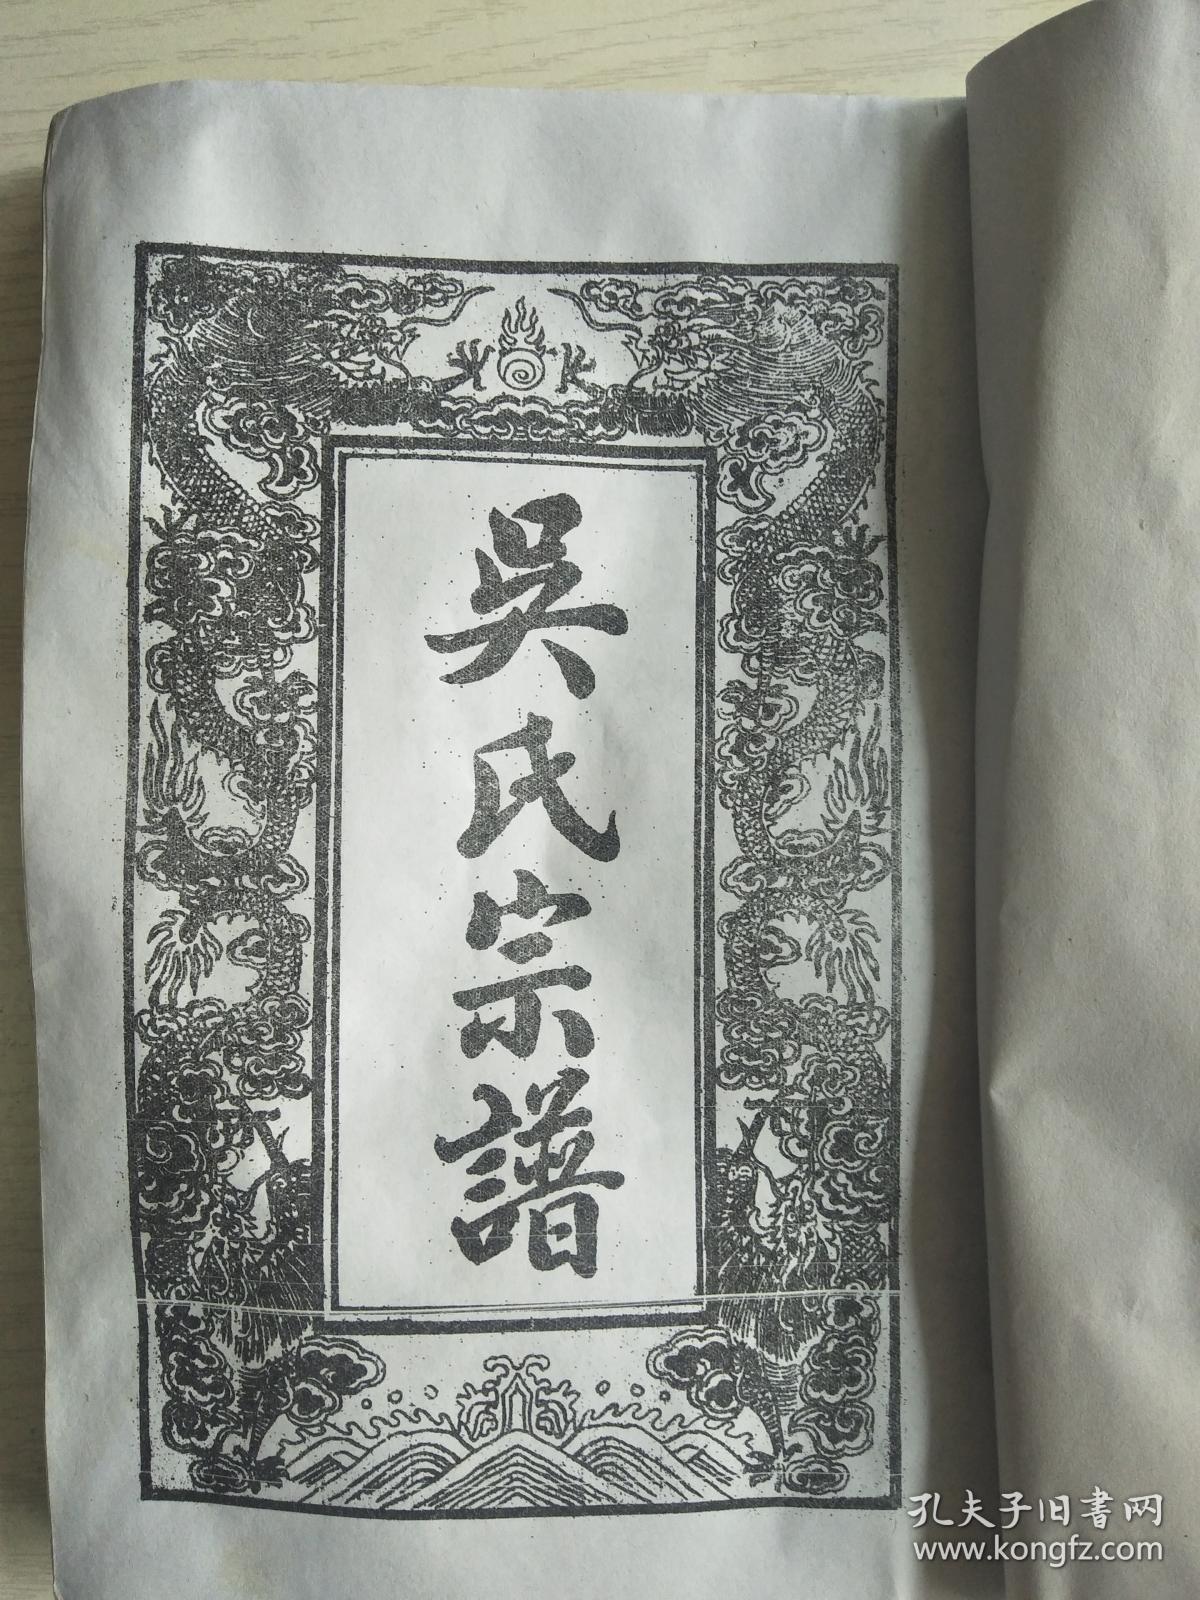 吳氏宗譜
孔夫子旧書网
www.kongfz.com